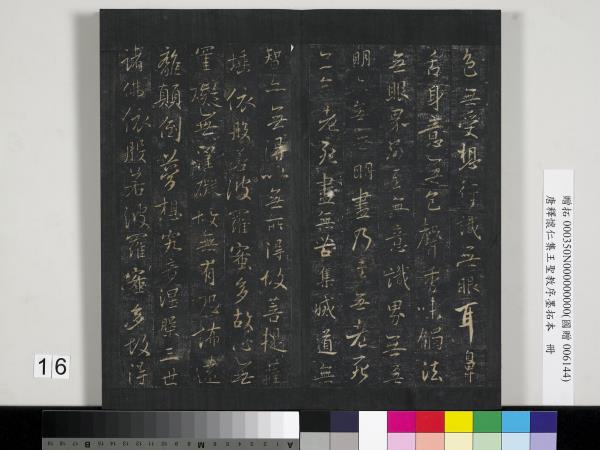 贈拓 000350N000000000(國贈 006144)
唐釋懷仁集王聖教序 墨拓本 冊
色無受想行識無眼耳鼻
舌身意無色聲香味觸法
無眼界乃至無意識界無無
明亦無無明盡乃至無老死
亦無老死盡無苦集滅道無
智亦無得以無所得故菩提薩
埵依般若波羅蜜多故心無
罣礙無罣礙故無有恐怖遠
離顛倒夢想究竟涅槃三世
諸佛依般若波羅蜜多故得
16
A M B